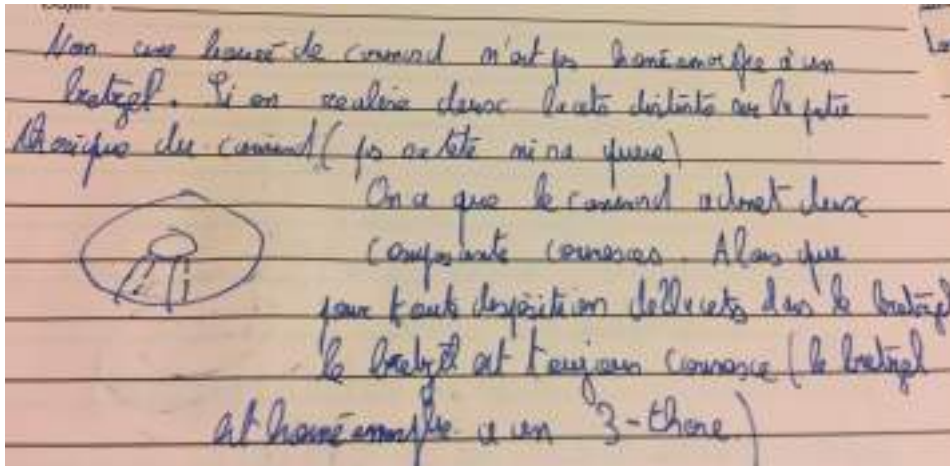 Non une bouée de canard n'est ps homéomorphe à un
bretzel. Si on réalise deux lacets distints sur la partie
thorique du canard ( ps sa tête ni sa queue)
On a que le canard admet deux
composante connexes. Alors que
pour toute disposition de lacets dans le bretzel
le bretzel est toujours connexe ( le bretzel
est homéomorphe a un 3-thore)